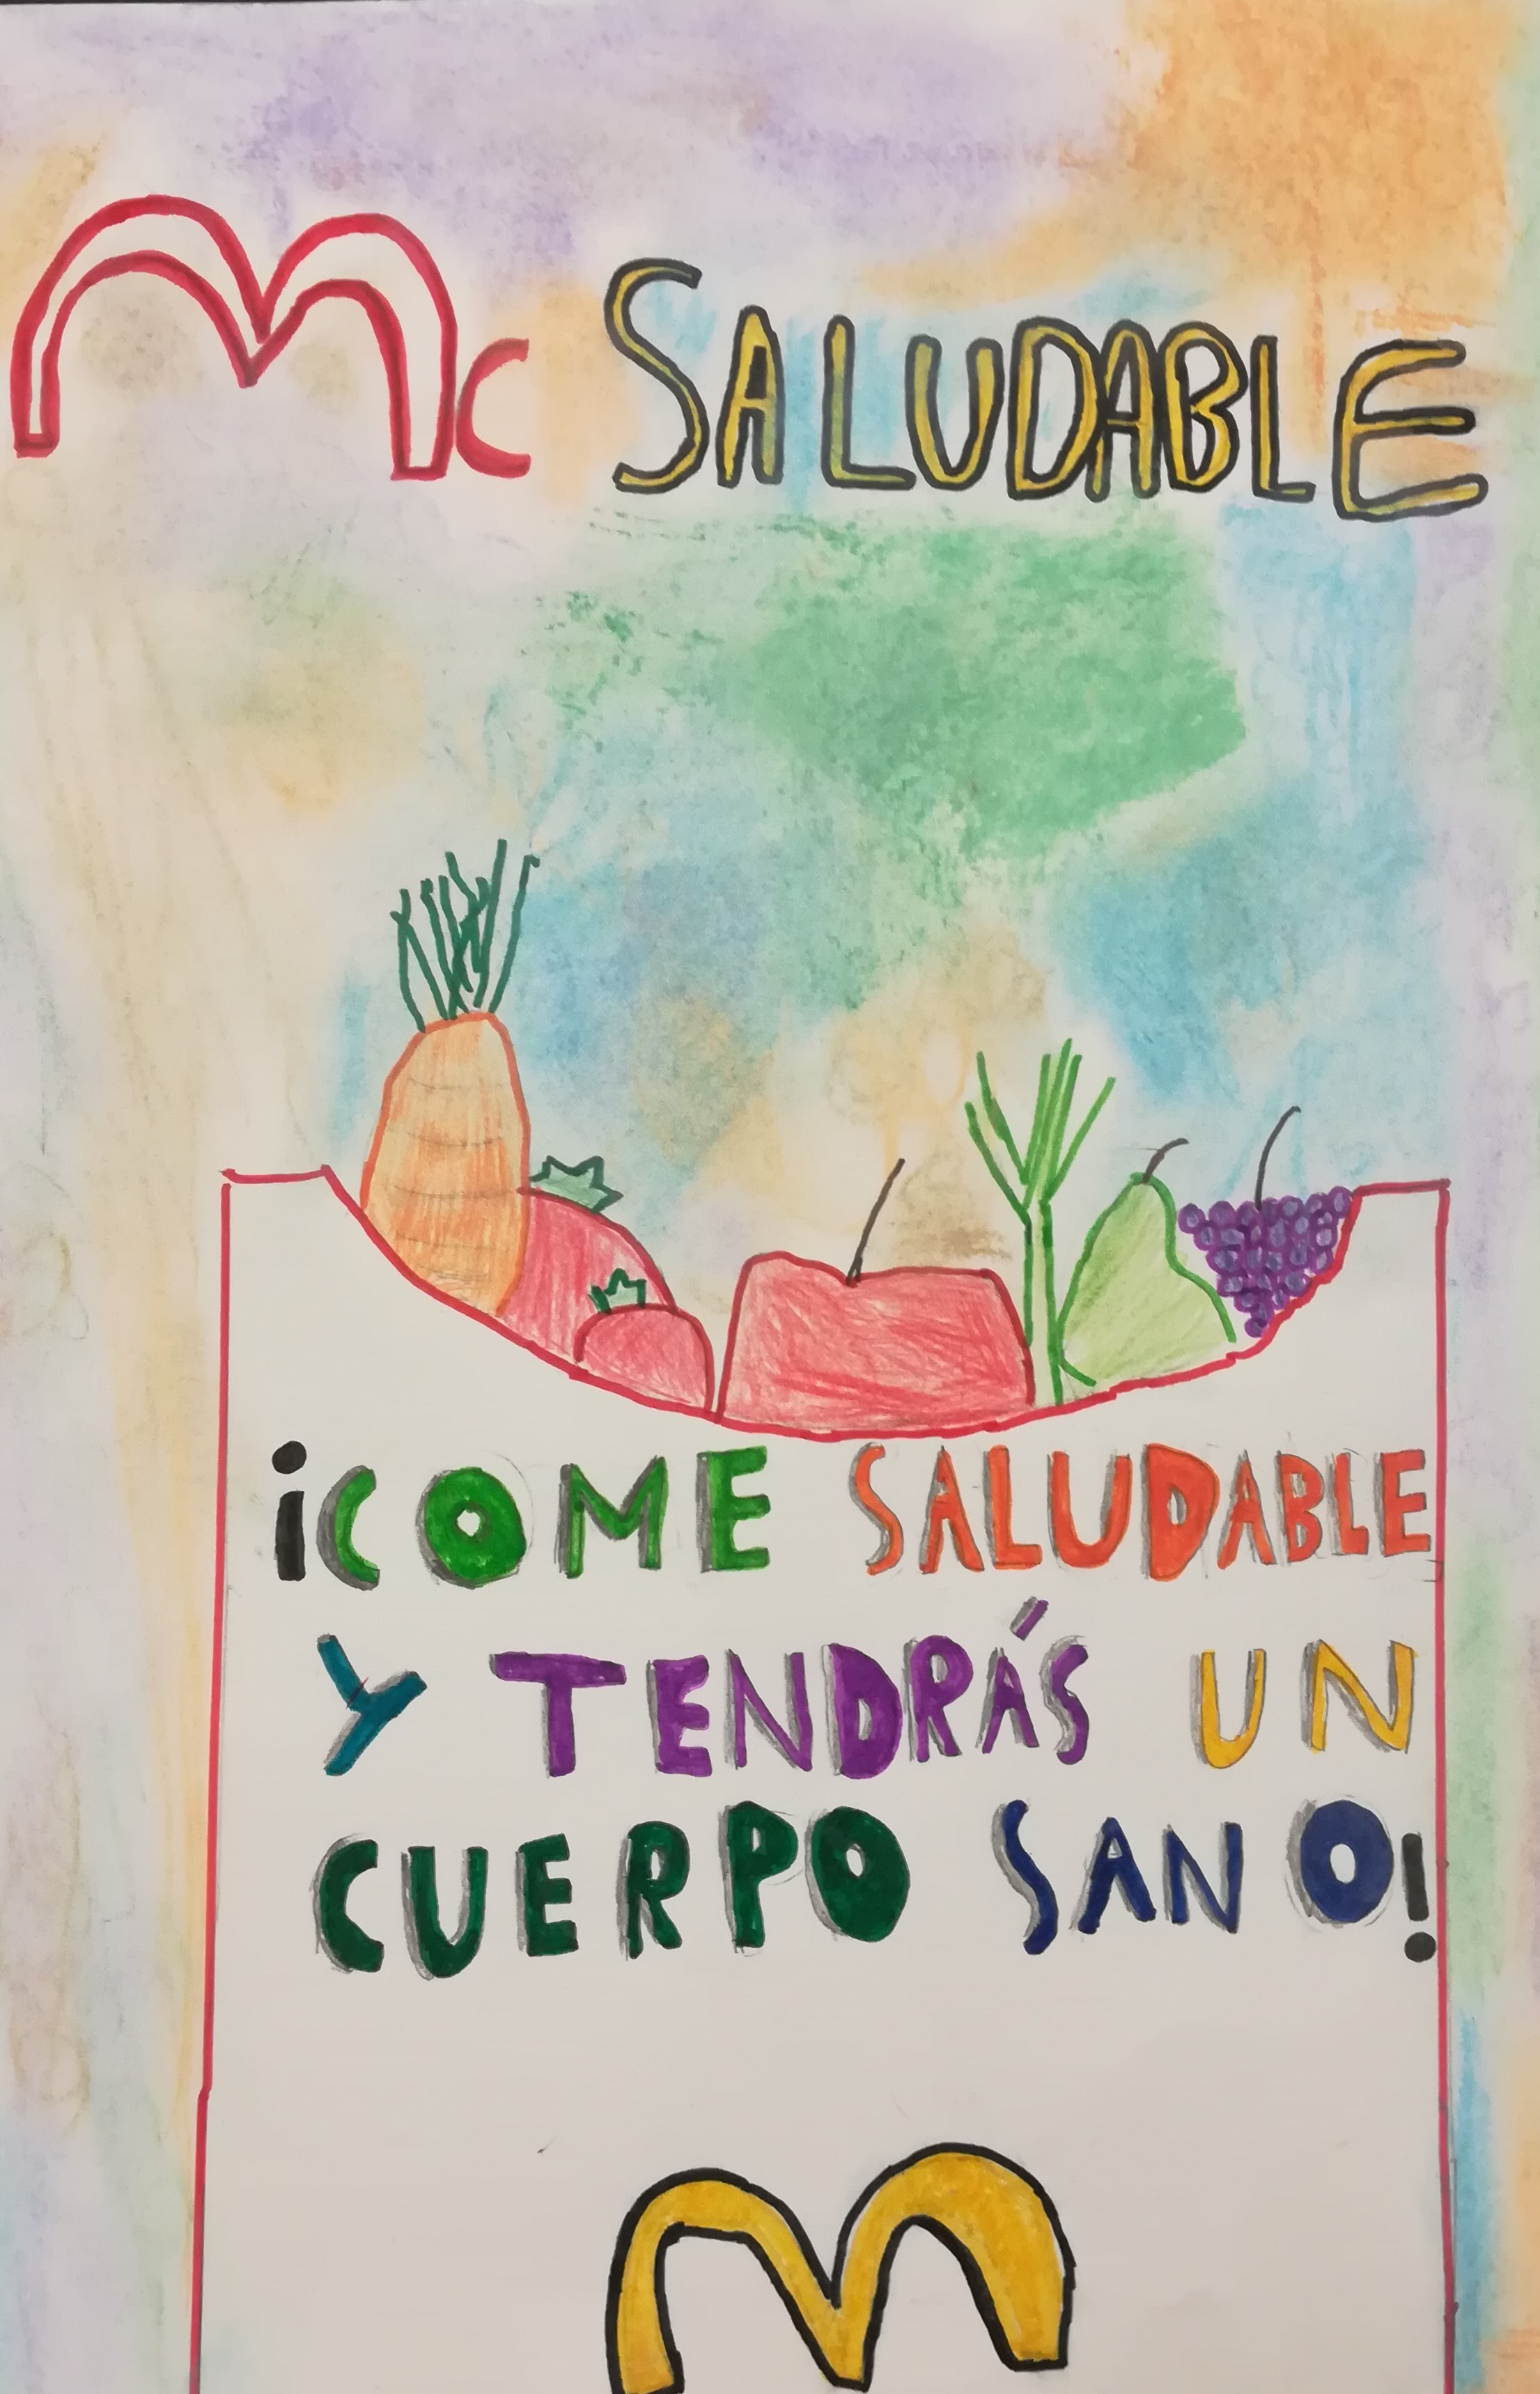 Mc SALUDABLE
¡COME SALUDABLE
Y TENDRÁS UN
CUERPO SANO!
M